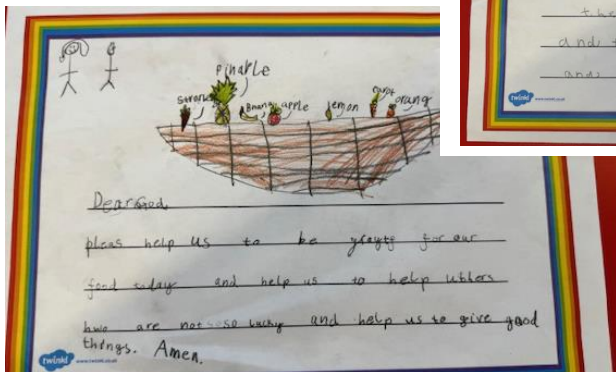 pinaple
Banana apple
lemon
orang
Dear God,
pleas help us to be for our
today and help us to help
hwo are not soso lucky and help us to give good
things. Amen.
twinkl www.twinkl.co.uk
the
and
and
twinkl www.twinkl.co.uk